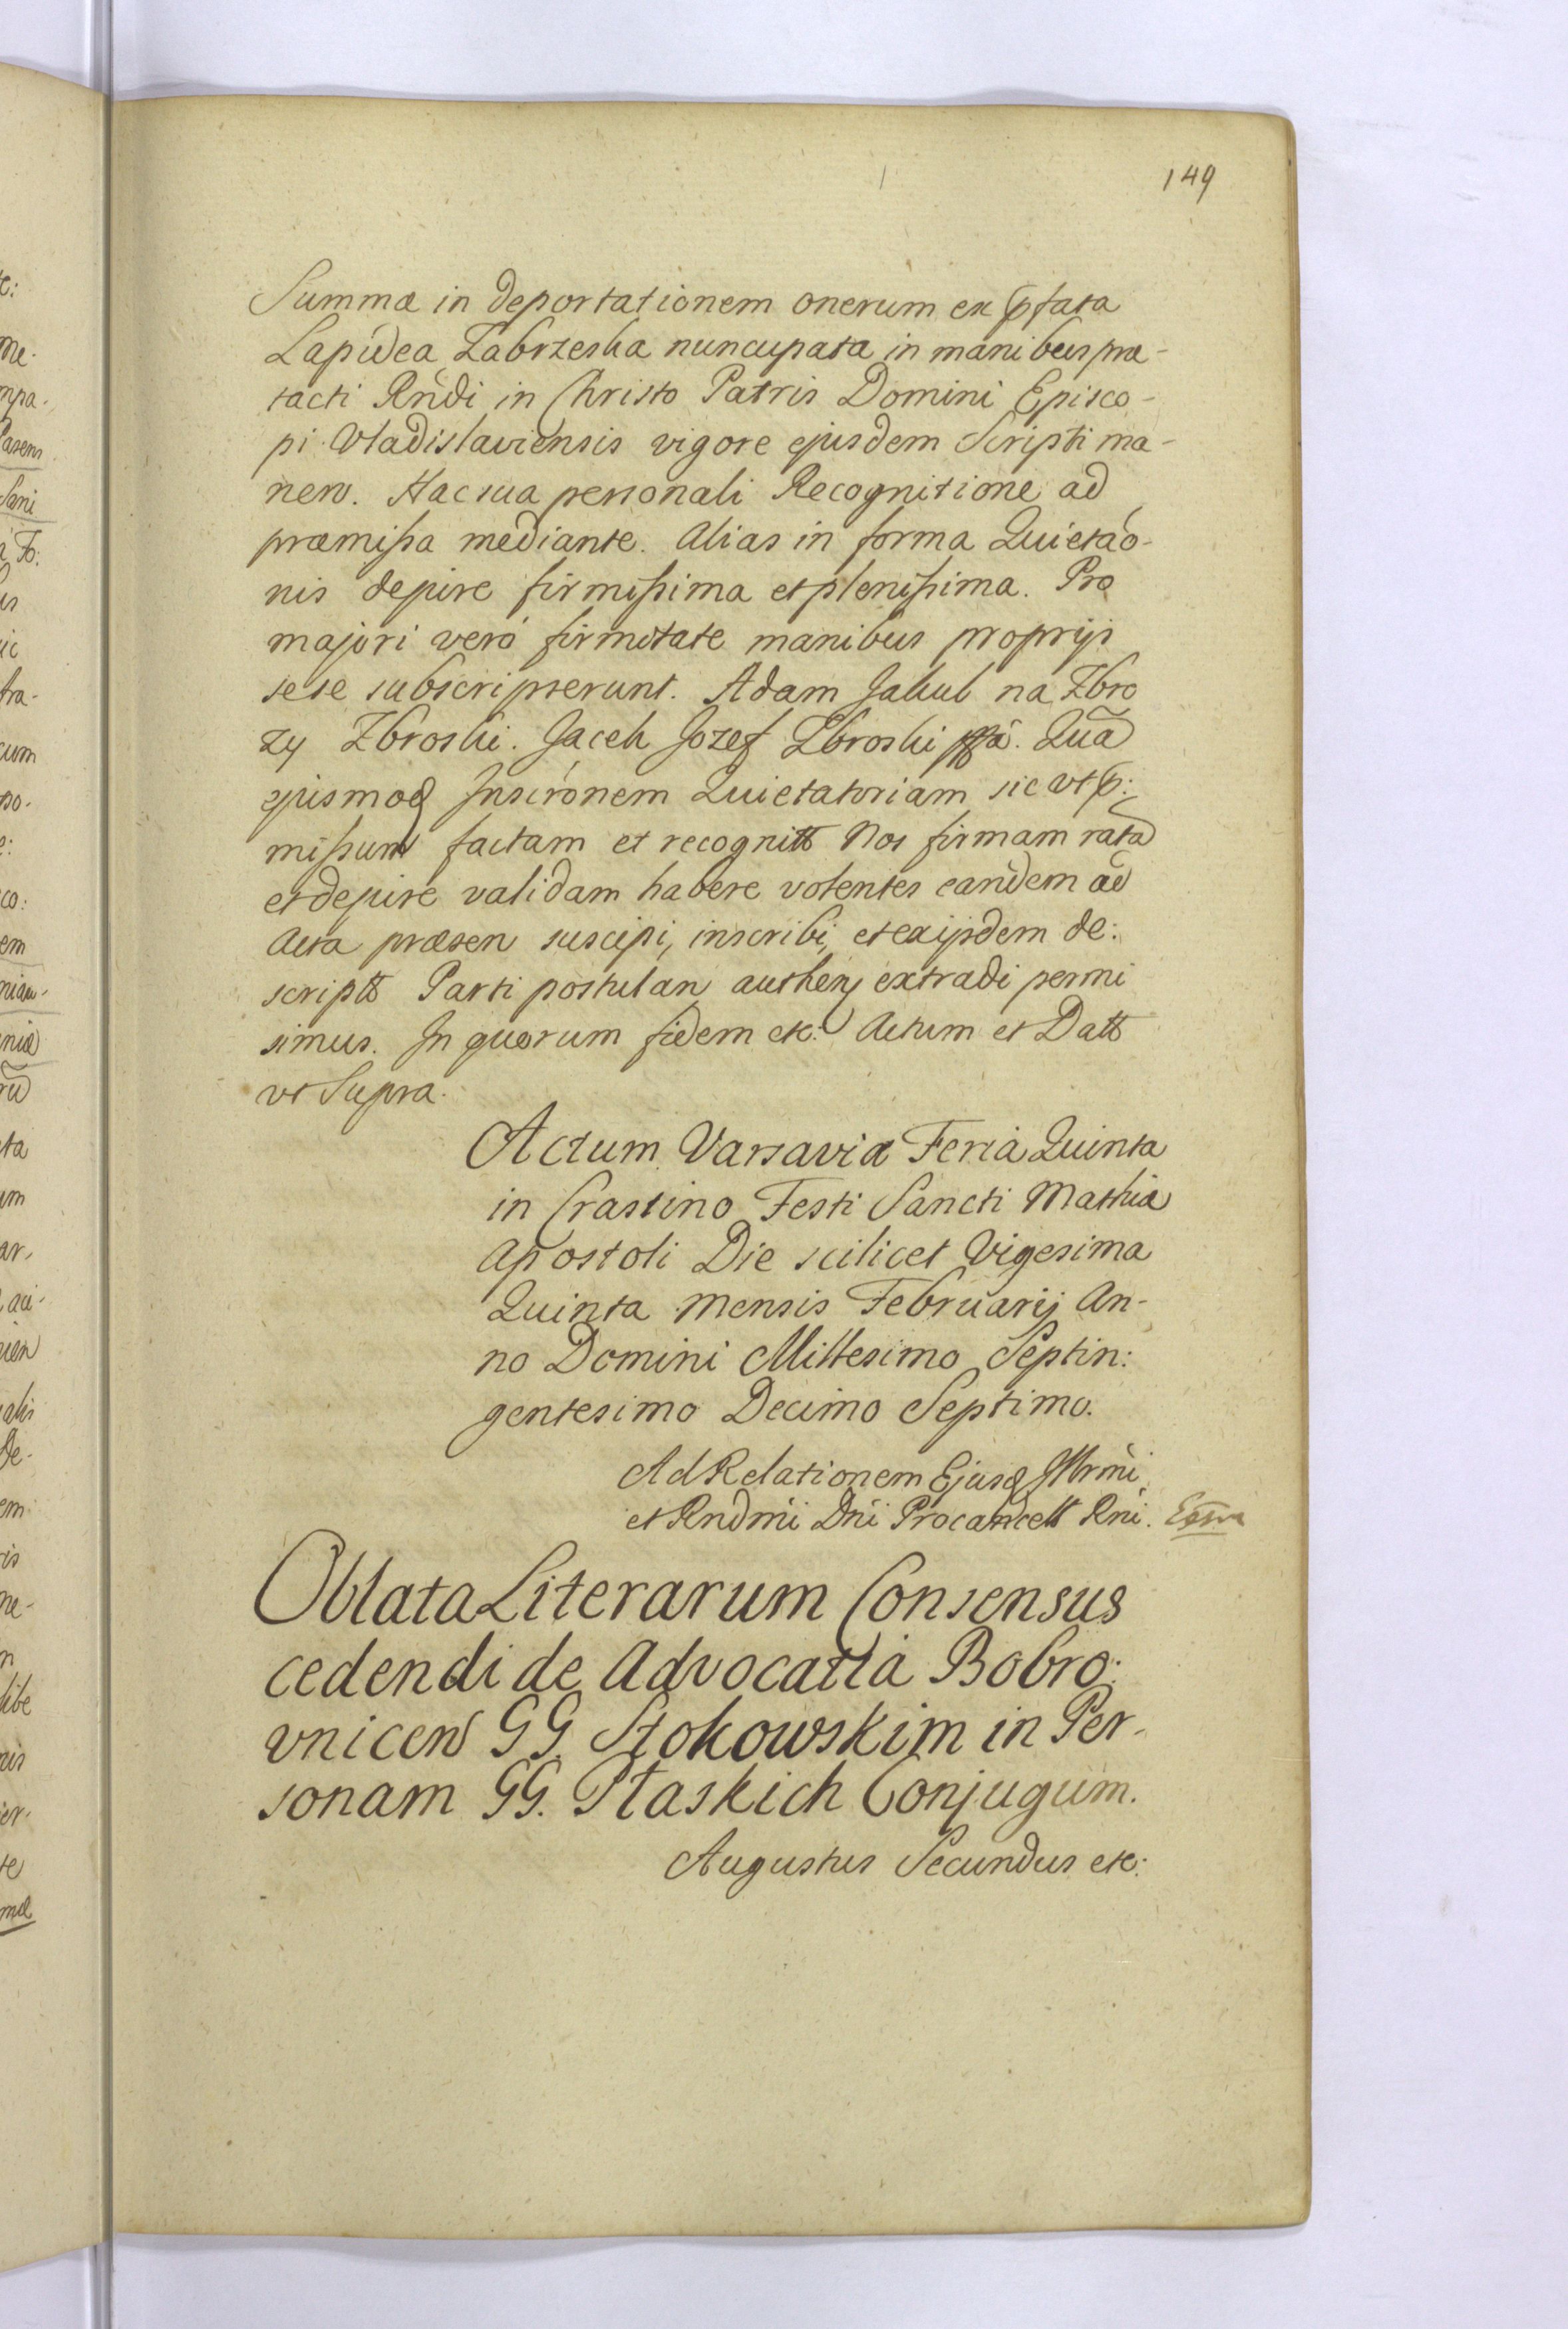 149
Summæ in deportationem onerum ex p̃fata
Lapidea Zabrzeska nuncupata in manibus præ-
tacti Rndi in Christo Patris Domini Episco-
pi Vladislaviensis vigore ejusdem Scripti ma-
nen. Hac sua personali Recognitione ad
præmissa mediante. Alias in forma Quietão-
nis dejure firmissima et plenissima. Pro
majori verò firmitate manibus proprijs
sese subscripserunt. Adam Jakub na Zbro
zy Zbroski. Jacek Jozef Zbroski mpp. Quã
ejusmodi Inscrõnem Quietatoriam sic ut p:
missum factam et recognitt Nos firmam ratã
et dejure validam habere volentes eandem ad
Acta præsen suscipi, inscribi, et ex ijsdem de:
scriptt Parti postulan authen extradi permi
simus. In quorum fidem etc: Actum et Datt
ut Supra.
Actum Varsaviæ Feria Quinta
in Crastino Festi Sancti Mathiæ
Apostoli Die scilicet Vigesima
Quinta Mensis Februarij An-
no Domini Millesimo Septin:
gentesimo Decimo Septimo.
Ad Relationem Ejusd Illrmi
et Rndmi Dni Procancell Rni.
Oblata Literarum Consensus
cedendi de Advocatia Bobro:
vnicen GG Stokowskim in Per-
sonam GG. Płaskich Conjugum.
Augustus Secundus etc: